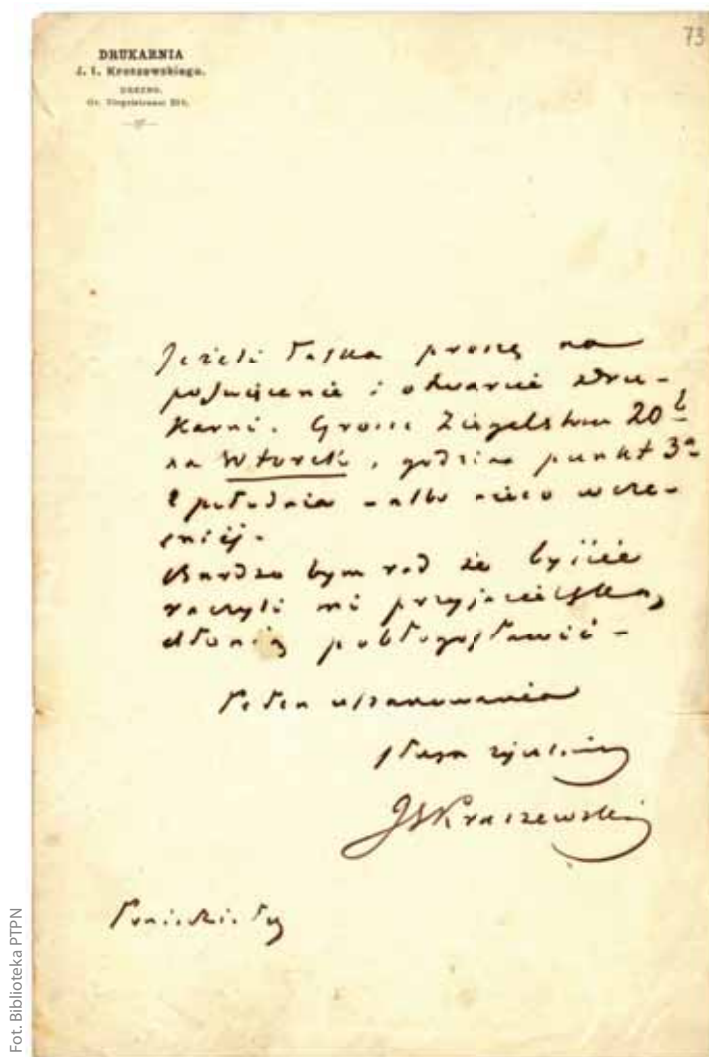 73
DRUKARNIA
J. I. Kraszewskiego.
DREZNO.
Gr. Ziegelstrasse 20 b.
Jeżeli łaska proszę na
poświęcenie i otwarcie Dru-
karni. Grosse Ziegelstrasse 20 b
na Wtorek, godzina punkt 3a
z południa – albo nieco wcze-
śniéj.
Bardzo bym rad że byście
raczyli mi przyjacielską
dłonią pobłogosławić –
Pełen uszanowania
sługa życzliwy
JIKraszewski
Fot. Biblioteka PTPN